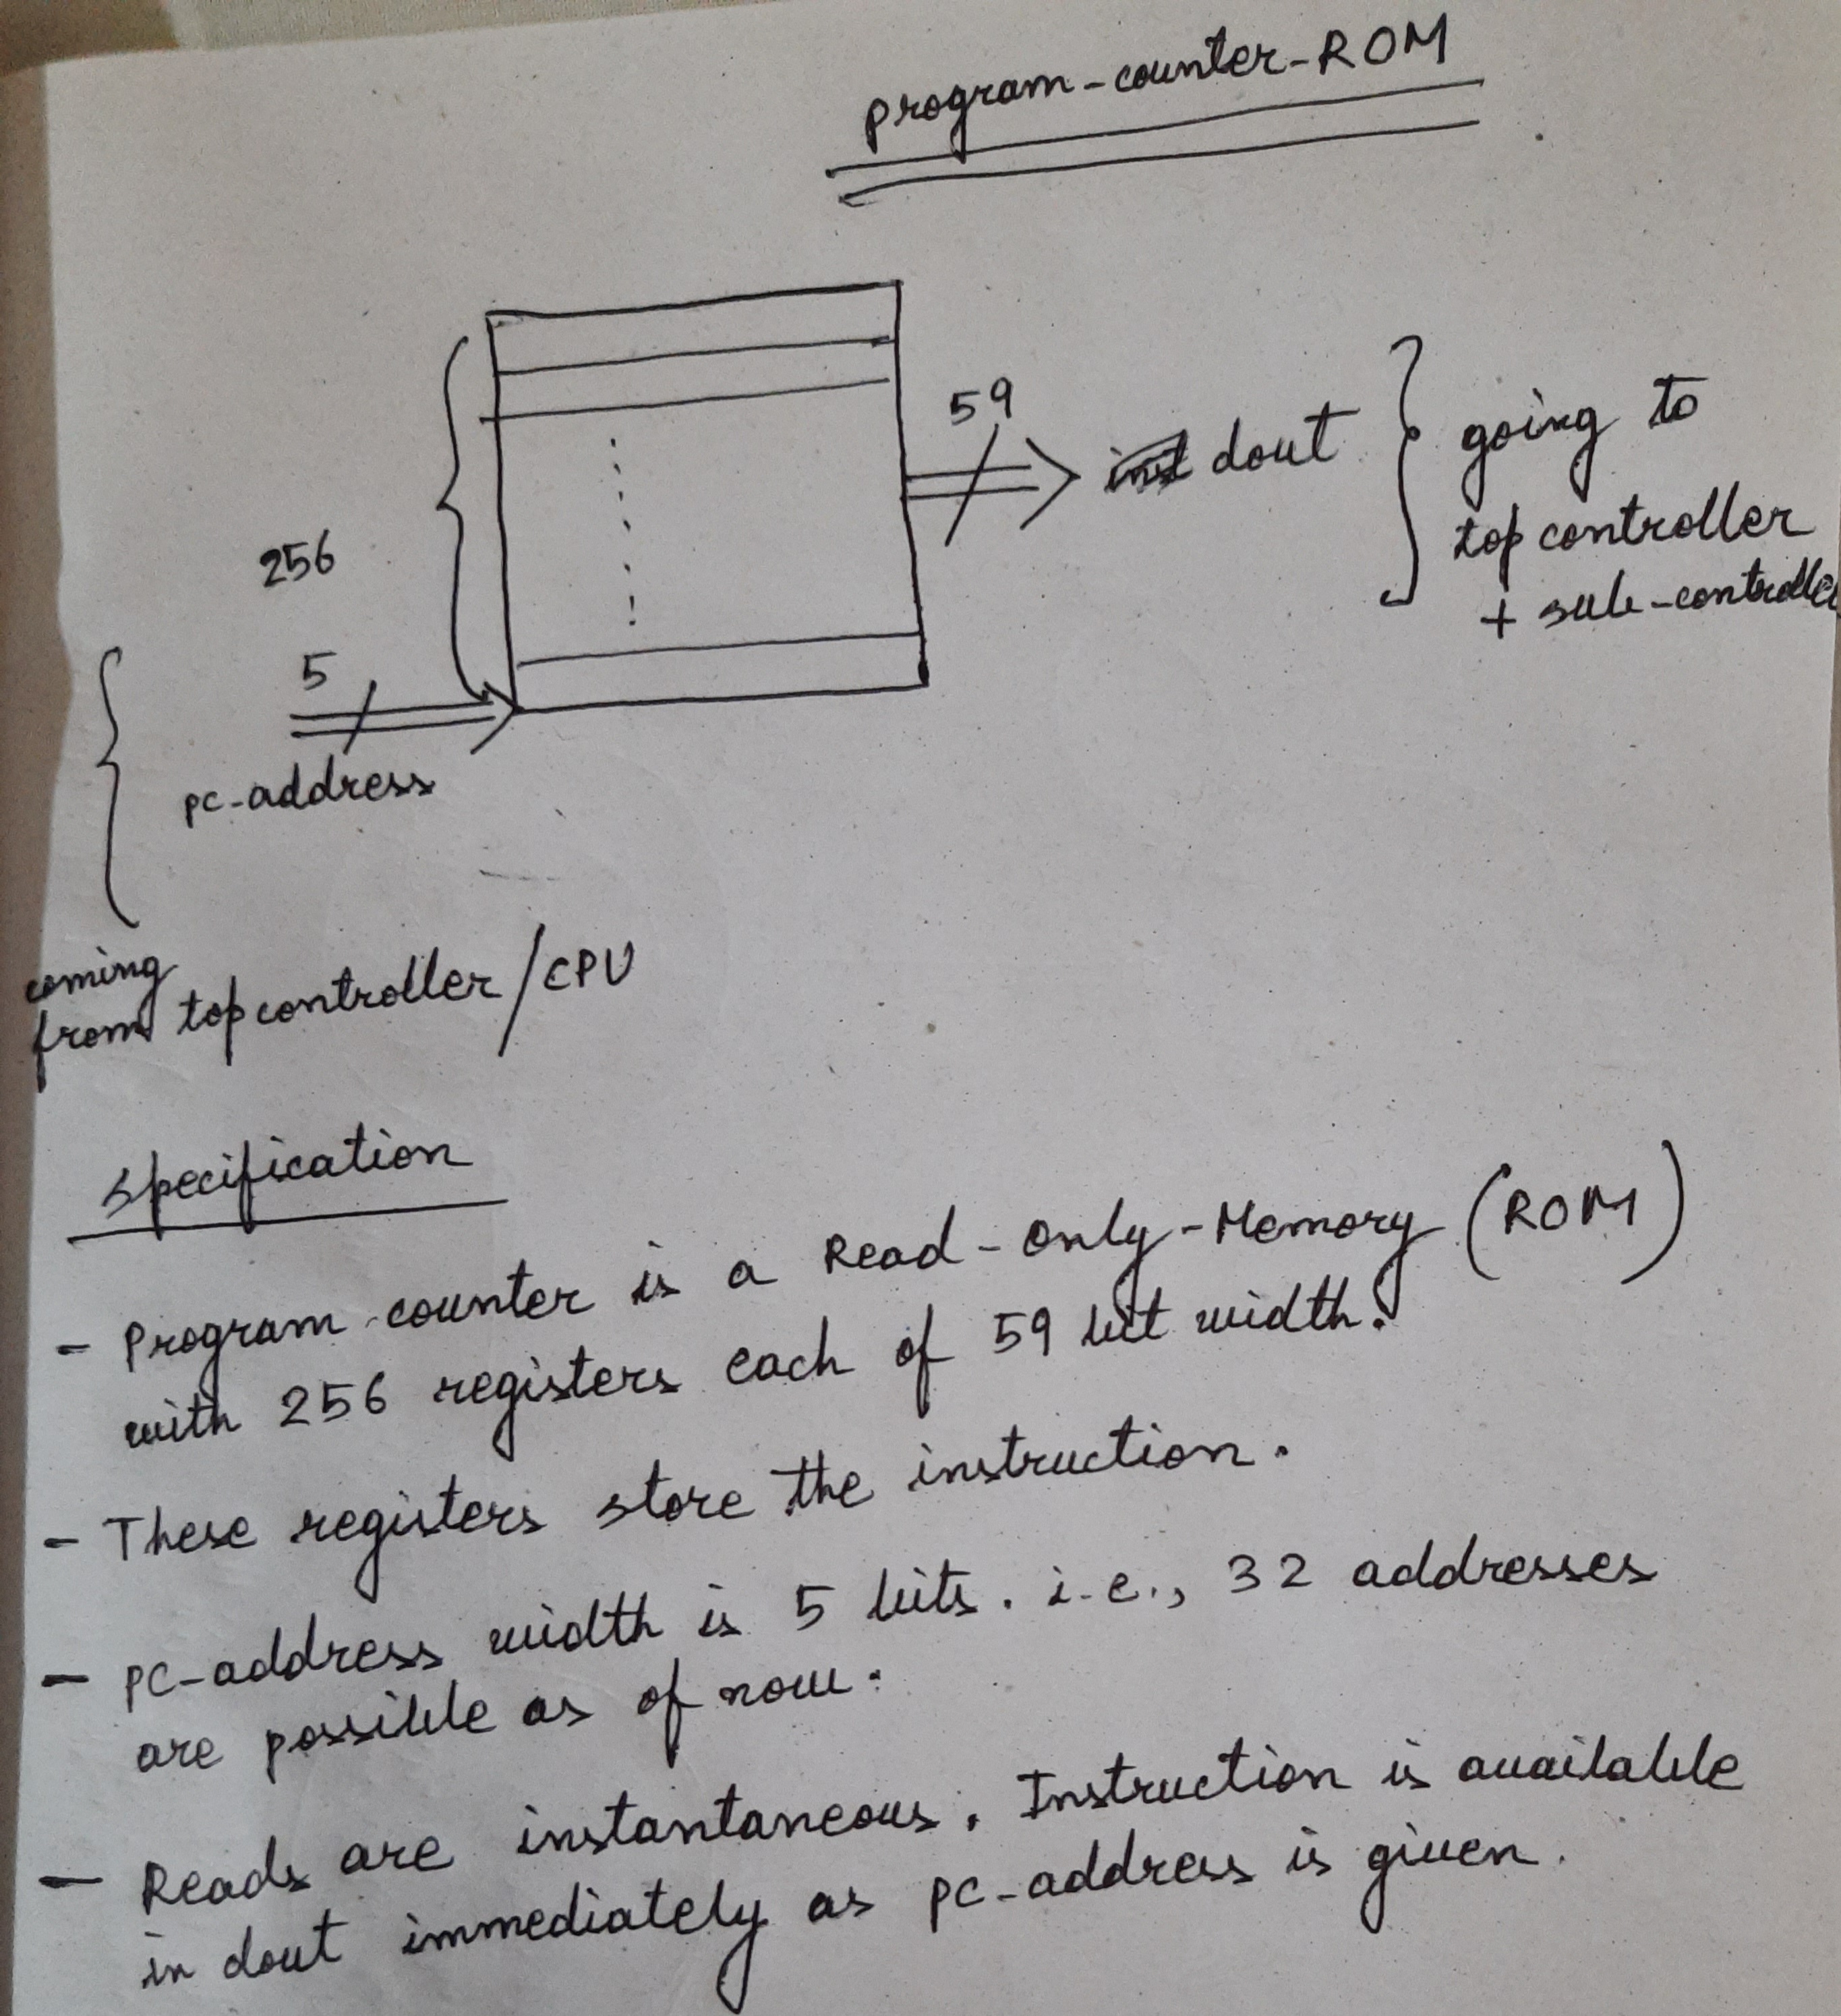 program-counter-ROM
59
dout
going to
top controller
+ sub-controller
256
5
pc-address
coming
from top controller/CPU
Specification
- Program counter is a Read-Only-Memory (ROM)
with 256 registers each of 59 bit width.
- These registers store the instruction.
- PC-address width is 5 bits. i.e., 32 addresses
are possible as of now.
- Reads are instantaneous. Instruction is available
in dout immediately as pc-address is given.